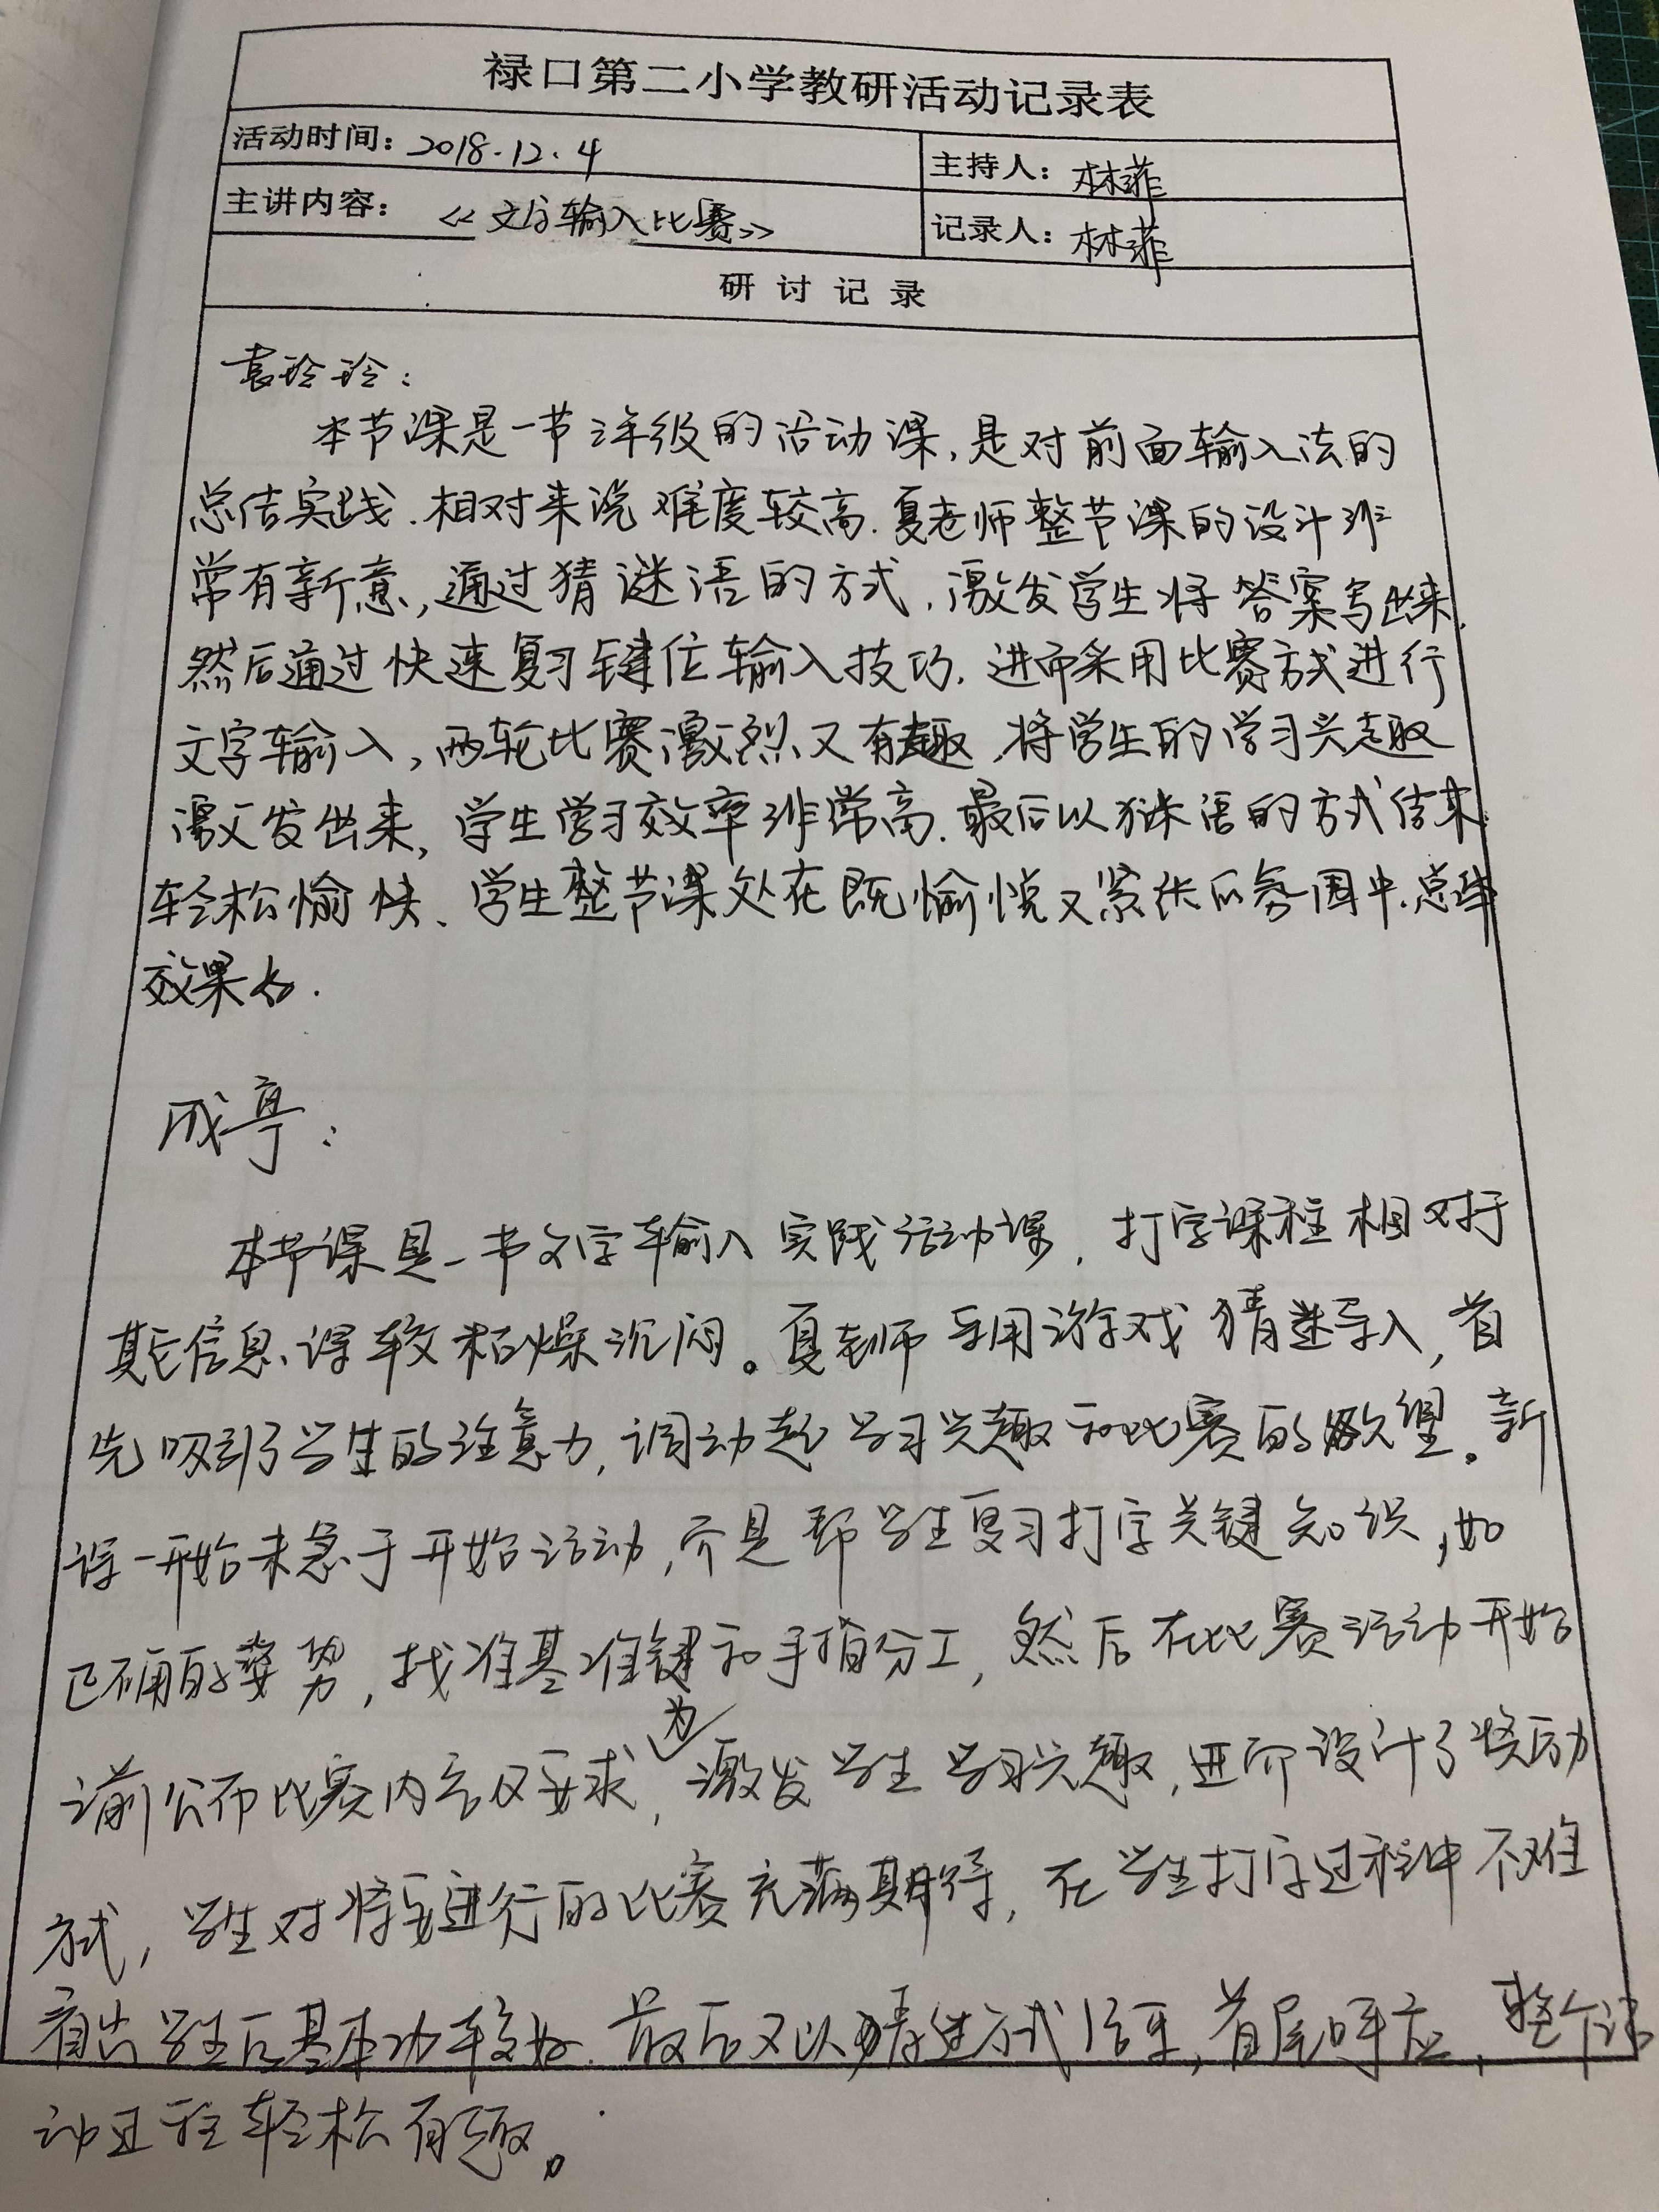 禄口第二小学教研活动记录表
活动时间：2018.12.4
主持人：林菲
主讲内容：《文字输入比赛》
记录人：林菲
研讨记录
袁玲玲：
本节课是一节三年级的活动课，是对前面输入法的
总结实践.相对来说难度较高.夏老师整节课的设计非
常有新意，通过猜谜语的方式，激发学生将答案写出来.
然后通过快速复习键位输入技巧.进而采用比赛方式进行
文字输入，两轮比赛激烈又有趣，将学生的学习兴趣
激发出来，学生学习效率非常高.最后以谜语的方式结束
轻松愉快、学生整节课处在既愉悦又紧张的氛围中.总体
效果好.
成亭：
本节课是一节文字输入实践活动课，打字课程相对于
其它信息课较枯燥沉闷。夏老师采用游戏猜谜导入，首
先吸引了学生的注意力，调动起学习兴趣和比赛的欲望。新
课一开始未急于开始活动，而是帮学生复习打字关键知识，如
正确的姿势，找准基准键和手指分工，然后在比赛活动开始
之前公布比赛内容及要求，为激发学生学习兴趣，进而设计了奖励
方式，学生对将要进行的比赛充满期待，在学生打字过程中不难
看出学生的基本功较好.最后又以猜谜方式结束，首尾呼应，整个活
动过程轻松有趣。